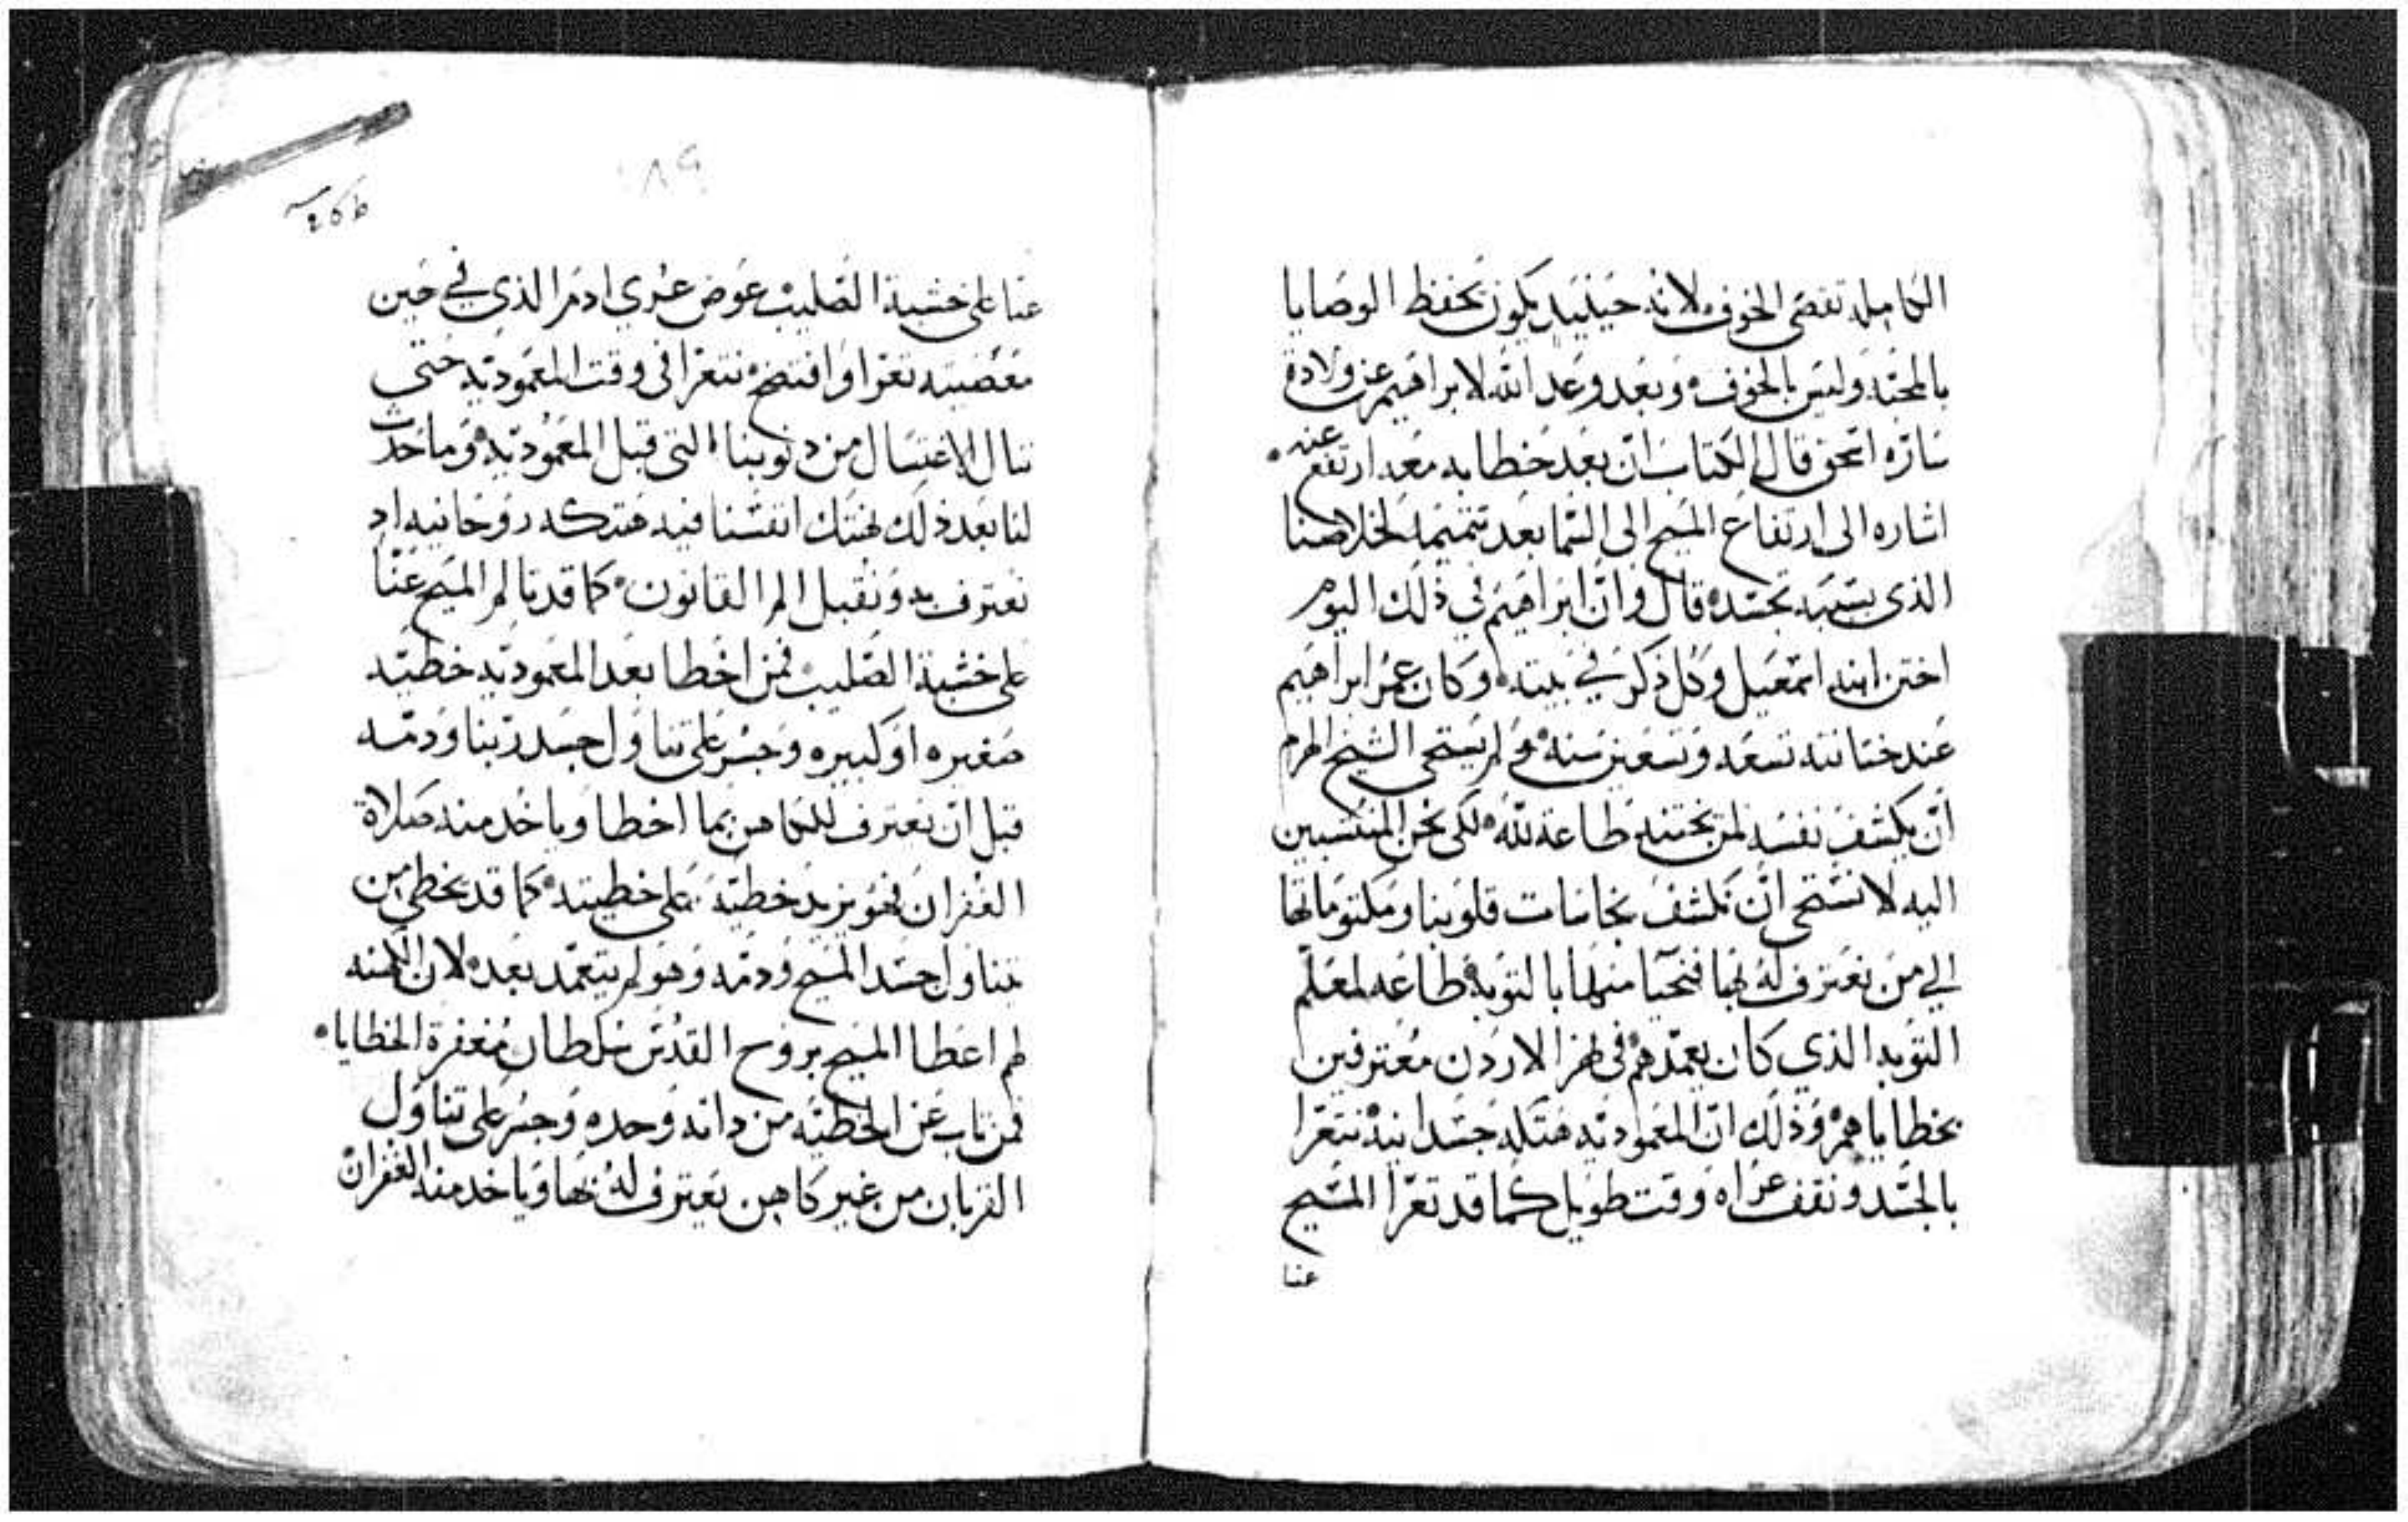 الكامله تقصى الخوف لانه حينيد يكون تحفظ الوصايا
بالمحبّه وليس بالخوف، وبعد وعد الله لابراهيم عن ولادة
سارّه اسحق قال الكتاب ان بعد خطابه معه ارتفع عنه.
اشاره الى ارتفاع المسيح الى السّما بعد تتميمه لخلاصنا
الذي بسَببه تجسّده قال وانّ ابراهيم في ذلك اليوم
اختن ابنه اسمعيل وكل ذكر في بيته، وكان عمر ابراهيم
عند ختانته تسعه وتسعين سنه، ولم يستحى الشيخ الهرم
انّ يكشف نفسه لمن يختنه طاعة لله، لكى نحن المنتسبين
اليه لا نستحى انّ نكشف نجاسات قلوبنا ومكتوماتها
الي من نعترف لهُ بها فنحيا منها بالتوبة طاعه لمعلّم
التوبه الذي كان يعمّدهم في نهر الاردن معترفين
بخطاياهم، وذلك انّ المعموديّه هتكه جسدانيه نتعرّا
بالجسّد ونقف عراه وقت طويل كما قد تعرّا المسّيح
عنا
٨٩
266
عنا على خشبة الصّليب عوض عري ادم الذي في حين
معصيته تعرّا وافتضح، نتعرا في وقت المعموديّه حتى
ننال الاغتسال من دنوبنا التى قبل المعموديّه، وما حدث
لنا بعد ذلك نهتك انفسّنا فيه هتكه روحانيه اد
نعترف به ونقبل الم القانون، كما قد تالم المسيح عنّا
على خشبة الصّليب، فمن اخطا بعد المعموديّه خطيّه
صغيره او كبيره وجسر على تناول جسد ربّنا ودمّه
قبل انّ يعترف للكاهن بما اخطا وياخد منه صلاة
الغفران فهو يزيد خطيّه على خطيته، كما قد يخطي من
تناول جسّد المسيح ودمّه وهو لم يتعمّد بعد، لان الكهنه
لهم اعطا المسيح بروح القدّس سلطان مغفرة الخطايا،
فمن تاب عن الخطيّه من داته وحده وجسر على تناول
القربان من غير كاهن يعترف لهُ بها وياخد منه الغفران